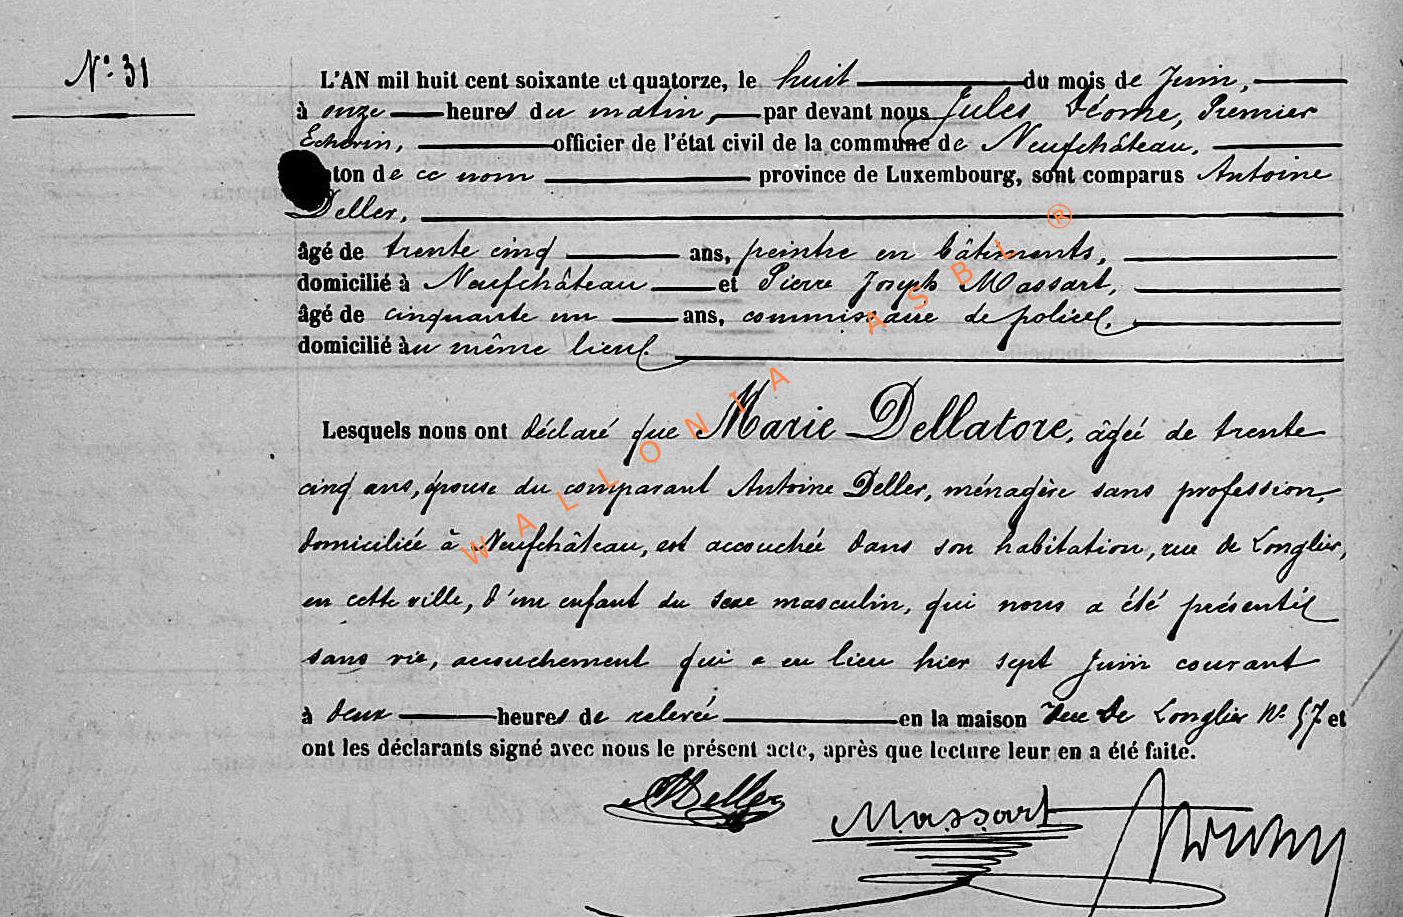 N° 31
L'AN mil huit cent soixante et quatorze, le huit du mois de Juin,
à onze heures du matin, par devant nous Jules Premier
Echevin, officier de l'état civil de la commune de Neufchâteau,
ton de ce nom province de Luxembourg, sont comparus Antoine
Deller,
âgé de trente cinq ans, peintre en bâtiments,
domicilié à Neufchâteau et Pierre Joseph Massart,
âgé de cinquante un ans, commissaire de police.
domicilié au même lieu.
Lesquels nous ont déclaré que Marie Dellatore, âgée de trente
cinq ans, épouse du comparant Antoine Deller, ménagère sans profession,
domiciliée à Neufchâteau, est accouchée dans son habitation, rue de Longlier,
en cette ville, d'un enfant du sexe masculin, qui nous a été présenté
sans vie, accouchement qui a eu lieu hier sept Juin courant
à deux heures de relevée en la maison Rue de Longlier N° 57 et
ont les déclarants signé avec nous le présent acte, après que lecture leur en a été faite.
Deller
Massart
WALLONIA ASBL ®